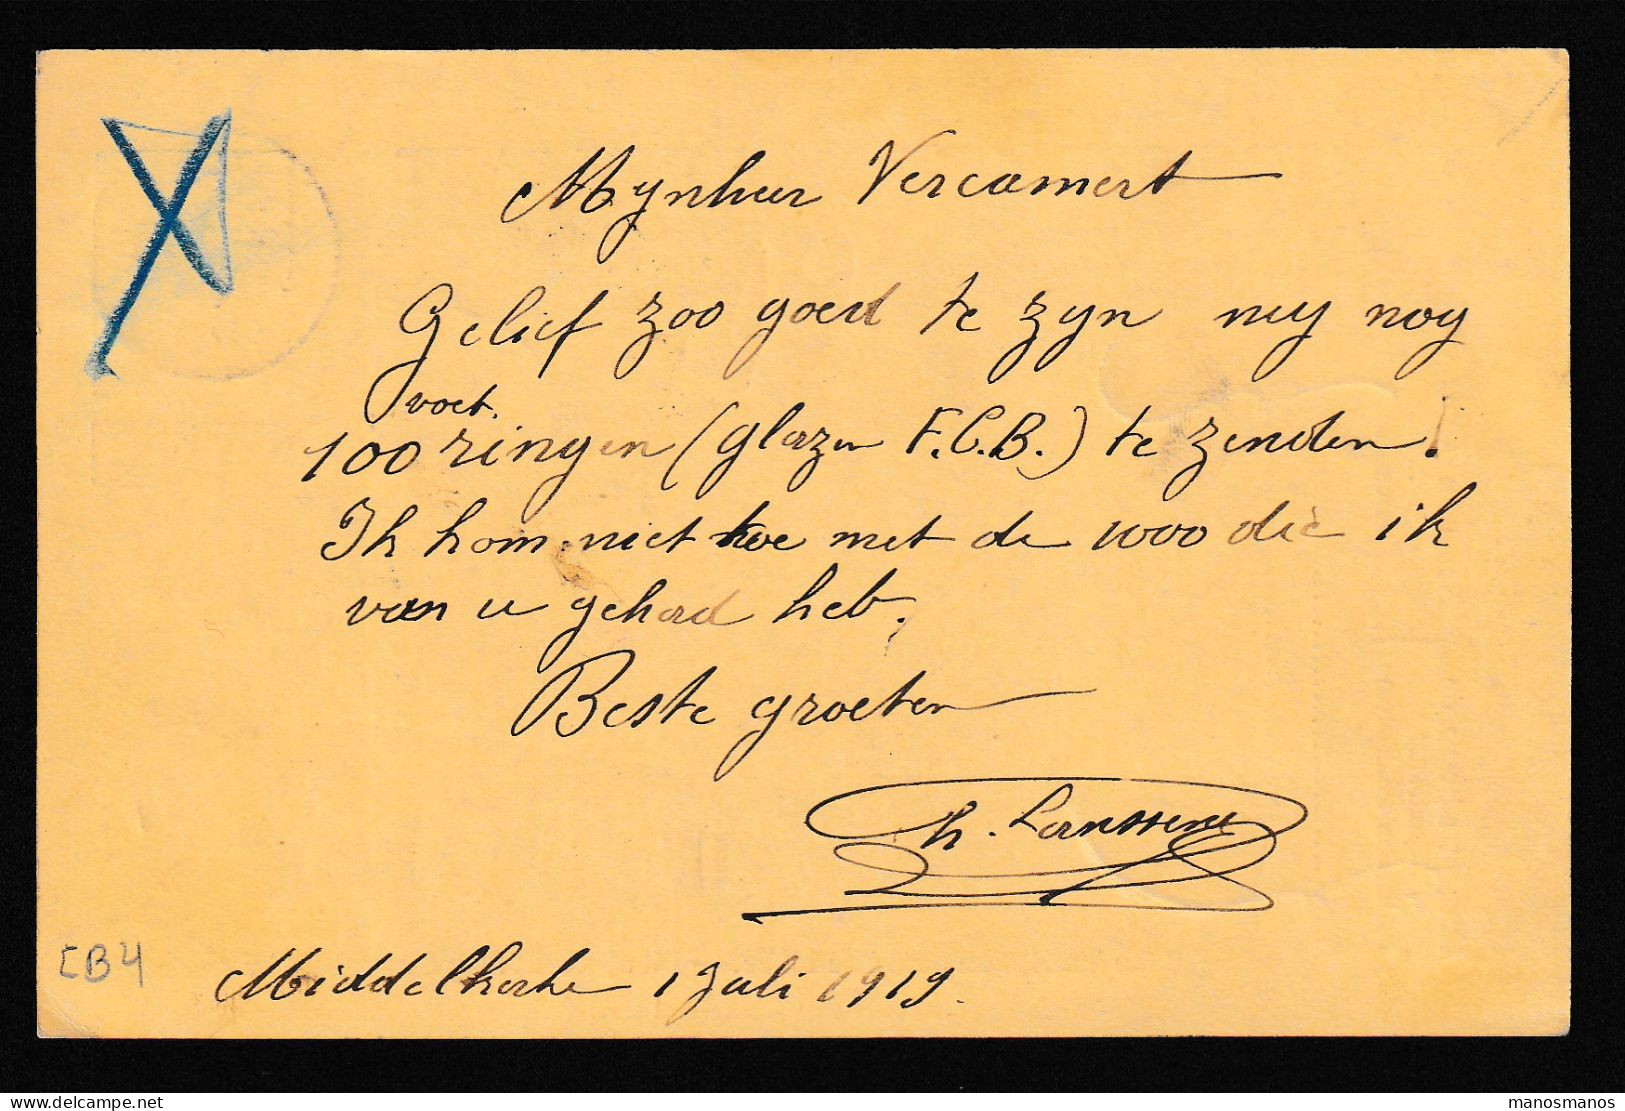 Mynheer Vercamert
Gelief zoo goed te zyn my nog
voet.
100 ringen (glazen F.C.B.) te zenden!
Ik kom niet toe met de 1000 die ik
van u gehad heb.
Beste groeten
h. Lanssens
Middelkerke 1 Juli 1919.
CB4
manosmanos